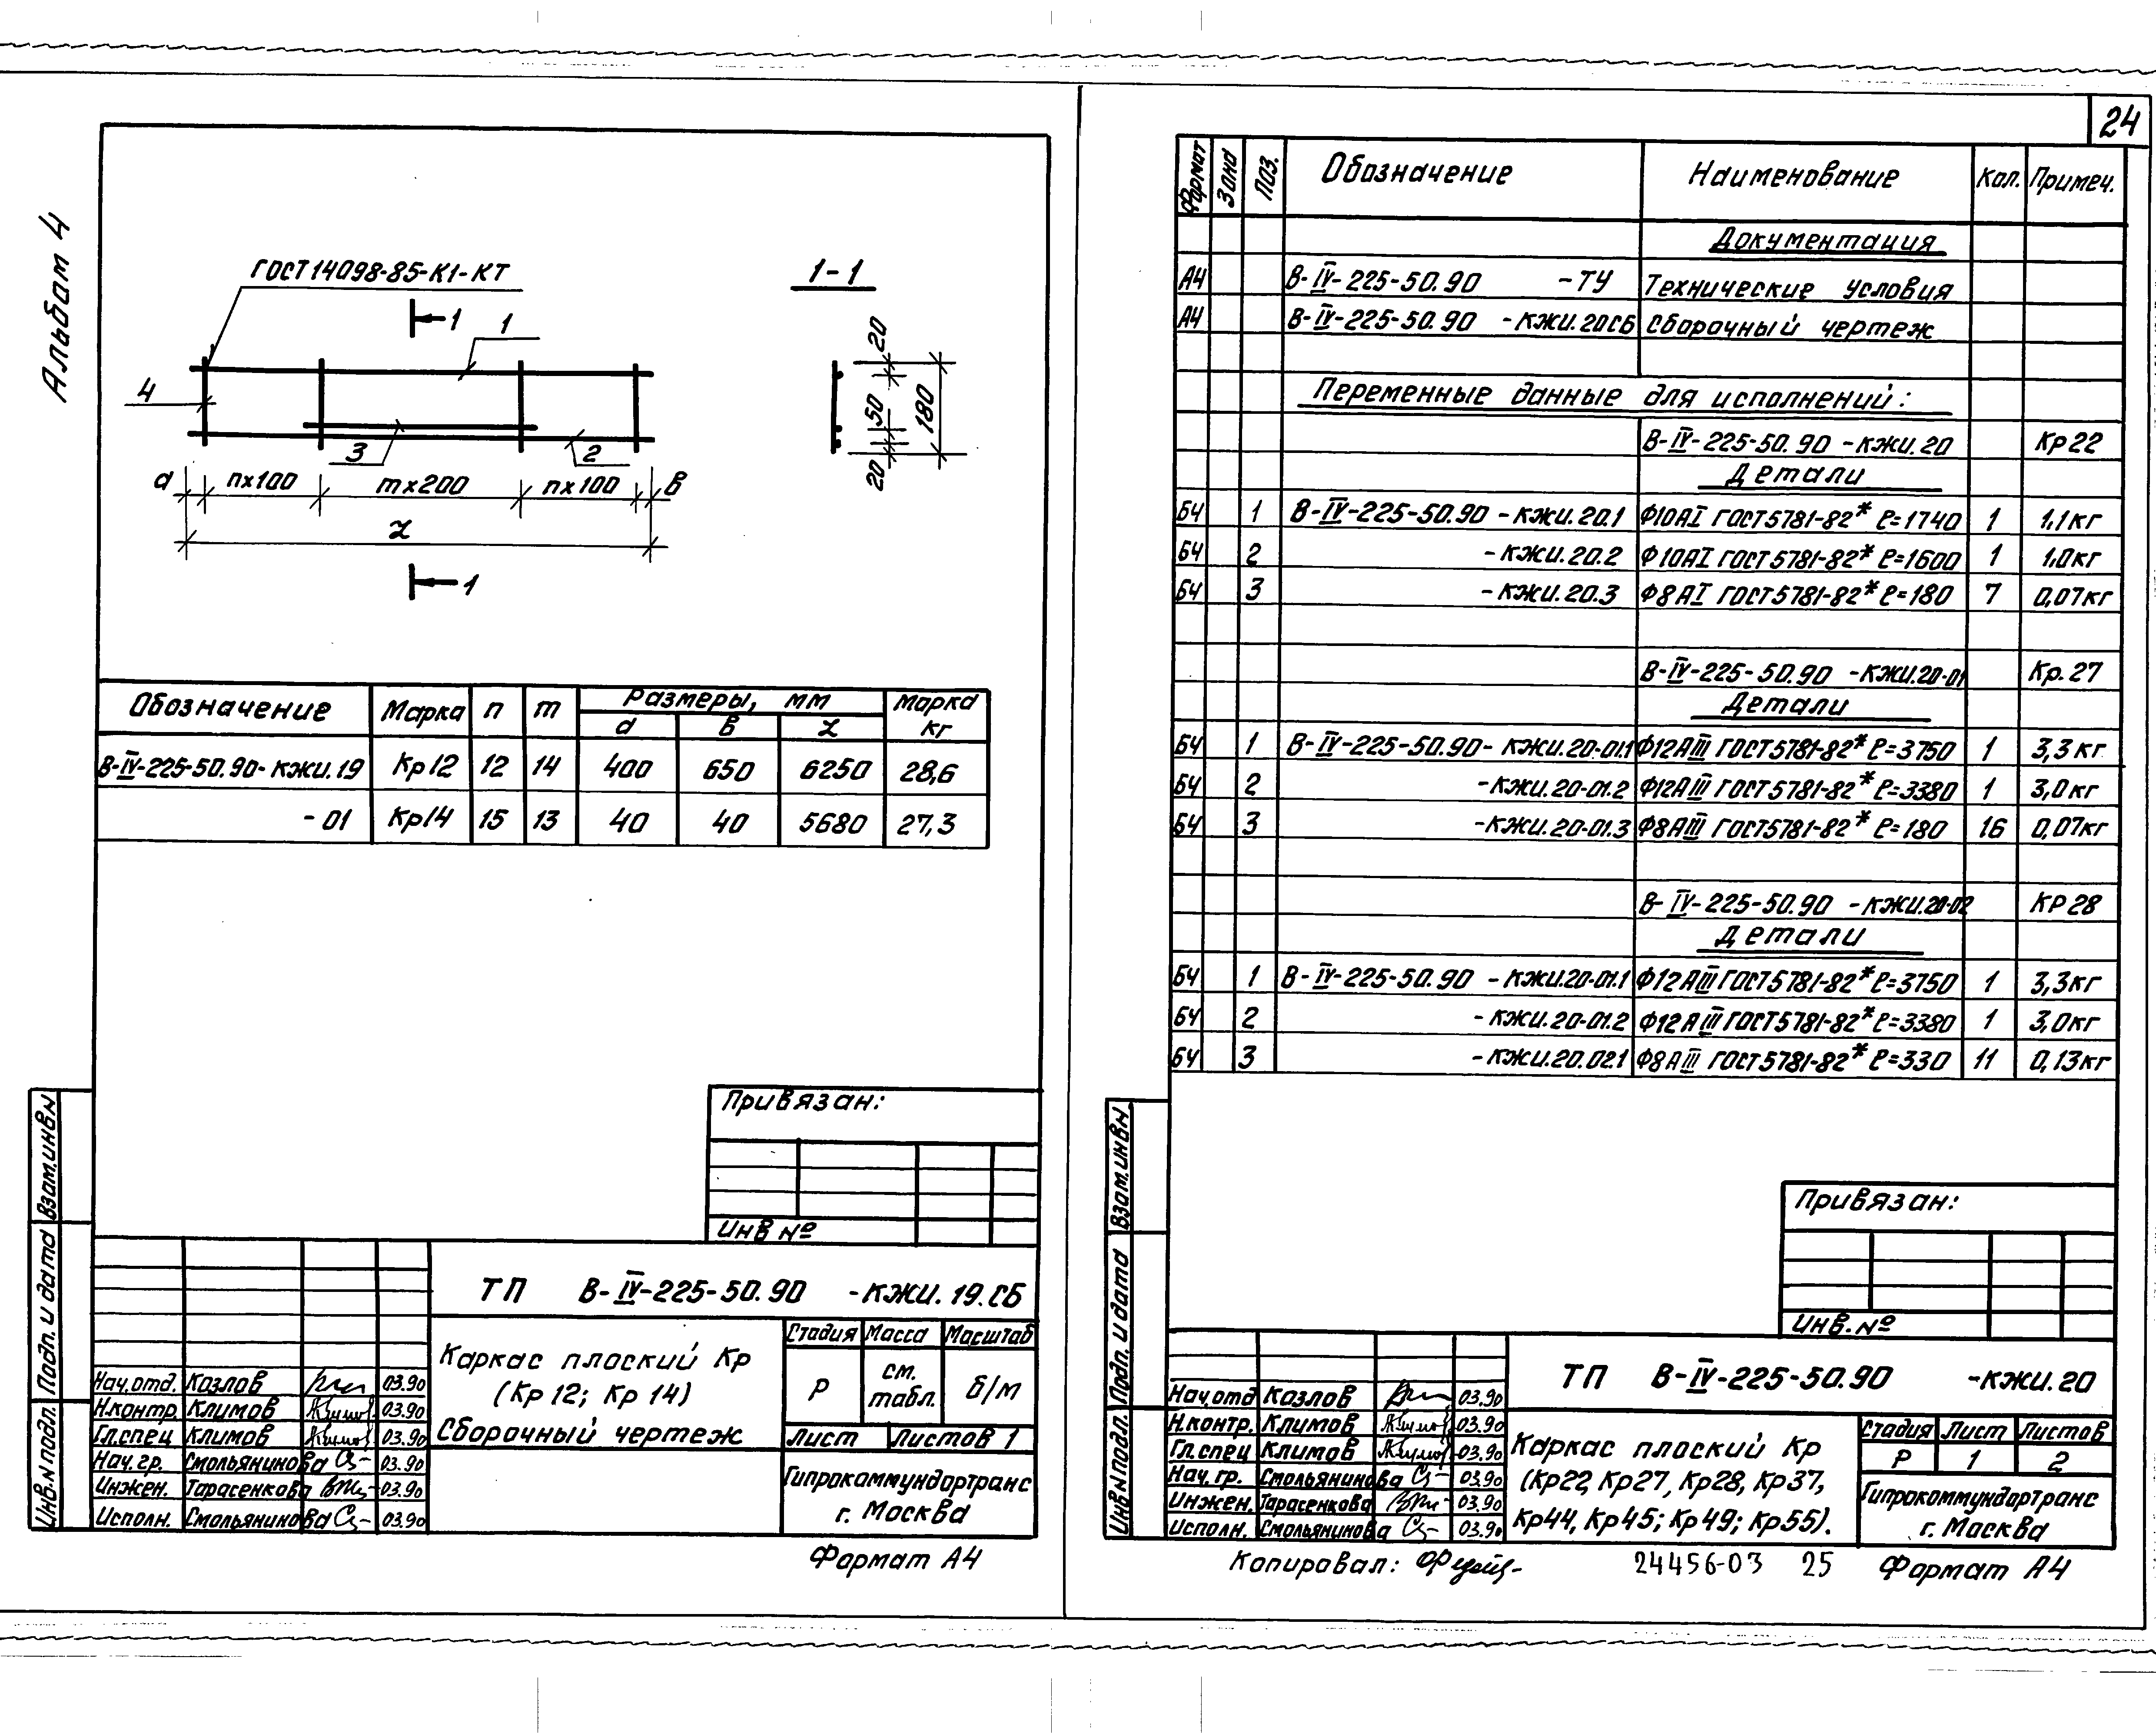 24
Альбом 4
ГОСТ 14098-85-К1-КТ
1-1
1
1
4
3
2
а
n×100
m×200
n×100
в
L
1
20
50
180
20
Обозначение Марка n m Размеры, мм Марка кг
а в L
В-IV-225-50.90-КЖИ.19 Кр12 12 14 400 650 6250 28,6
-01 Кр14 15 13 40 40 5680 27,3
Привязан:
Инв №
ТП В-IV-225-50.90 -КЖИ.19.СБ
Каркас плоский Кр
(Кр 12; Кр 14)
Сборочный чертеж
Стадия Масса Масштаб
Р см. табл. б/м
Лист Листов 1
Гипрокоммундортранс
г. Москва
Нач.отд. Козлов 03.90
Н.контр. Климов 03.90
Гл.спец Климов 03.90
Нач.гр. Смольянинова 03.90
Инжен. Тарасенкова 03.90
Исполн. Смольянинова 03.90
Взам.инв№
Подп. и дата
Инв№подл.
Формат А4
Формат Зона Поз. Обозначение Наименование Кол. Примеч.
Документация
А4 В-IV-225-50.90 -ТУ Технические условия
А4 В-IV-225-50.90 -КЖИ.20СБ Сборочный чертеж
Переменные данные для исполнений:
В-IV-225-50.90 -КЖИ.20 Кр22
Детали
БЧ 1 В-IV-225-50.90 -КЖИ.20.1 Ф10АI ГОСТ5781-82* ℓ=1740 1 1,1кг
БЧ 2 -КЖИ.20.2 Ф10АI ГОСТ5781-82* ℓ=1600 1 1,0кг
БЧ 3 -КЖИ.20.3 Ф8АI ГОСТ5781-82* ℓ=180 7 0,07кг
В-IV-225-50.90 -КЖИ.20-01 Кр.27
Детали
БЧ 1 В-IV-225-50.90-КЖИ.20-01.1 Ф12АIII ГОСТ5781-82* ℓ=3750 1 3,3кг
БЧ 2 -КЖИ.20-01.2 Ф12АIII ГОСТ5781-82* ℓ=3380 1 3,0кг
БЧ 3 -КЖИ.20-01.3 Ф8АIII ГОСТ5781-82* ℓ=180 16 0,07кг
В-IV-225-50.90 -КЖИ.20-02 КР28
Детали
БЧ 1 В-IV-225-50.90 -КЖИ.20-01.1 Ф12АIII ГОСТ5781-82* ℓ=3750 1 3,3кг
БЧ 2 -КЖИ.20-01.2 Ф12АIII ГОСТ5781-82* ℓ=3380 1 3,0кг
БЧ 3 -КЖИ.20.02.1 Ф8АIII ГОСТ5781-82* ℓ=330 11 0,13кг
Привязан:
Инв. №
ТП В-IV-225-50.90 -КЖИ.20
Каркас плоский Кр
(Кр22, Кр27, Кр28, Кр37,
Кр44, Кр45; Кр49; Кр55).
Стадия Лист Листов
Р 1 2
Гипрокоммундортранс
г. Москва
Нач.отд Козлов 03.90
Н.контр. Климов 03.90
Гл.спец Климов 03.90
Нач.гр. Смольянинова 03.90
Инжен. Тарасенкова 03.90
Исполн. Смольянинова 03.90
Взам.инв№
Подп. и дата
Инв№подл.
Копировал:
24456-03 25
Формат А4